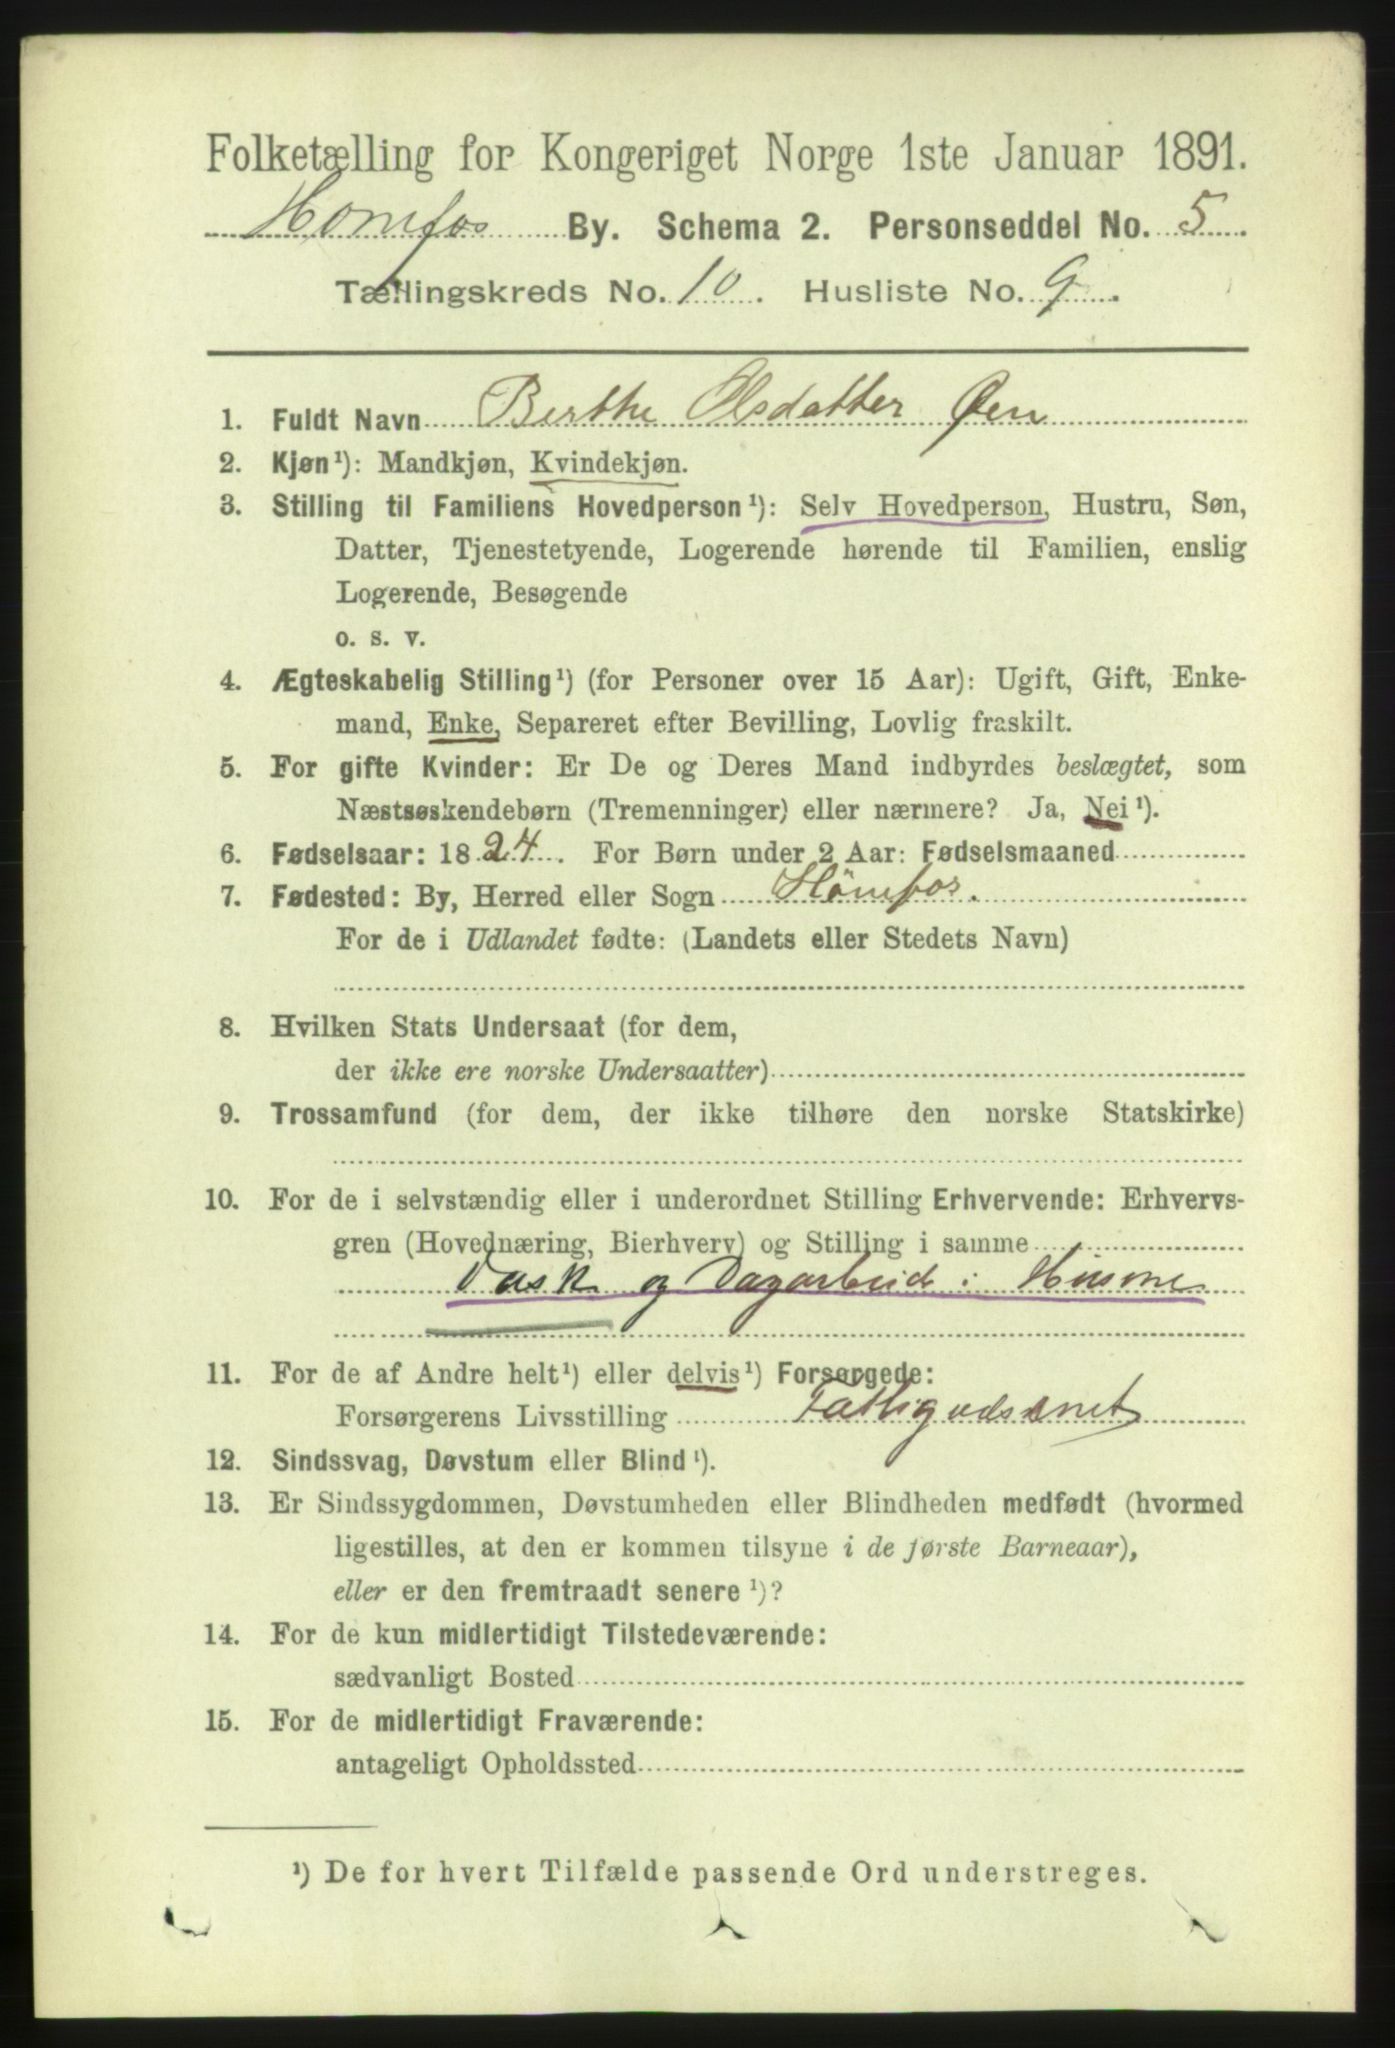 Folketælling for Kongeriget Norge 1ste Januar 1891.
Hønefos By. Schema 2. Personseddel No. 5.
Tællingskreds No. 10. Husliste No. 9.
1. Fuldt Navn Berthe Olsdatter Øen
2. Kjøn¹): Mandkjøn, Kvindekjøn.
3. Stilling til Familiens Hovedperson¹): Selv Hovedperson, Hustru, Søn,
Datter, Tjenestetyende, Logerende hørende til Familien, enslig
Logerende, Besøgende
o. s. v.
4. Ægteskabelig Stilling¹) (for Personer over 15 Aar): Ugift, Gift, Enke-
mand, Enke, Separeret efter Bevilling, Lovlig fraskilt.
5. For gifte Kvinder: Er De og Deres Mand indbyrdes beslægtet, som
Næstsøskendebørn (Tremenninger) eller nærmere? Ja, Nei¹).
6. Fødselsaar: 1824. For Børn under 2 Aar: Fødselsmaaned
7. Fødested: By, Herred eller Sogn Hönefos.
For de i Udlandet fødte: (Landets eller Stedets Navn)
8. Hvilken Stats Undersaat (for dem,
der ikke ere norske Undersaatter)
9. Trossamfund (for dem, der ikke tilhøre den norske Statskirke)
10. For de i selvstændig eller i underordnet Stilling Erhvervende: Erhvervs-
gren (Hovednæring, Bierhverv) og Stilling i samme
Vask og Dagarbeide i Husene
11. For de af Andre helt¹) eller delvis¹) Forsørgede:
Forsørgerens Livsstilling Fattigvæsenet
12. Sindssvag, Døvstum eller Blind¹).
13. Er Sindssygdommen, Døvstumheden eller Blindheden medfødt (hvormed
ligestilles, at den er kommen tilsyne i de første Barneaar),
eller er den fremtraadt senere¹)?
14. For de kun midlertidigt Tilstedeværende:
sædvanligt Bosted
15. For de midlertidigt Fraværende:
antageligt Opholdssted
¹) De for hvert Tilfælde passende Ord understreges.